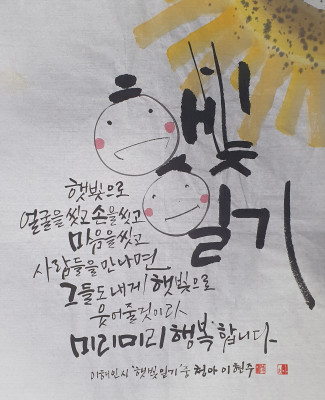 햇빛일기
햇빛으로
얼굴을 씻고 손을 씻고
마음을 씻고
사람들을 만나면
그들도 내게 햇빛으로
웃어줄 것이라
미리미리 행복합니다
이해인 시 '햇빛일기' 중 청아 이현주